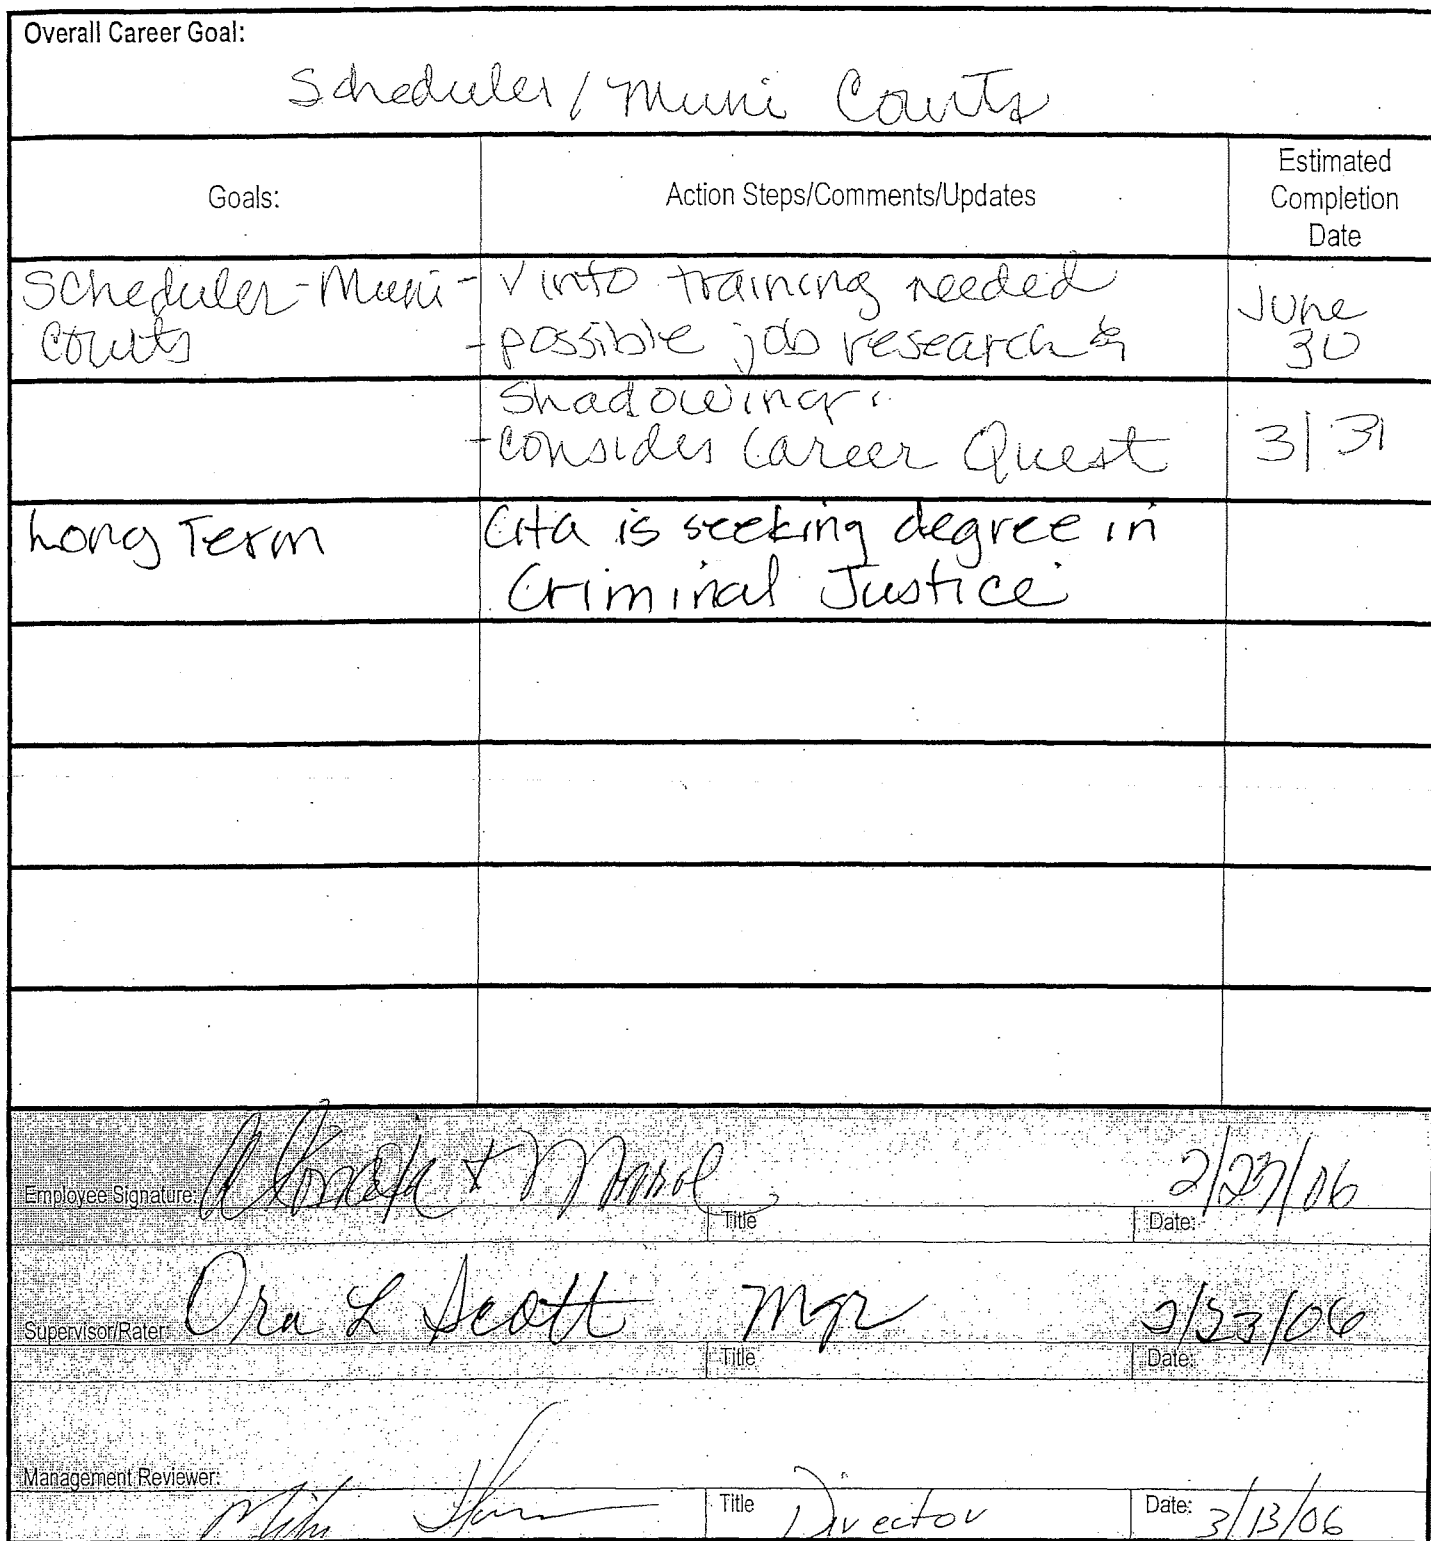 Overall Career Goal:
Scheduler / Muni Courts
Goals:
Action Steps/Comments/Updates
Estimated
Completion
Date
Scheduler - Muni
Courts
- √ into training needed
- possible job research &
June
30
shadowing.
- consider Career Quest
3/31
Long Term
Cita is seeking degree in
Criminal Justice
Employee Signature:
2/27/06
Title
Date:
Supervisor/Rater: Ora L Scott
Mgr
2/23/06
Title
Date:
Management Reviewer:
Title Director
Date: 3/13/06